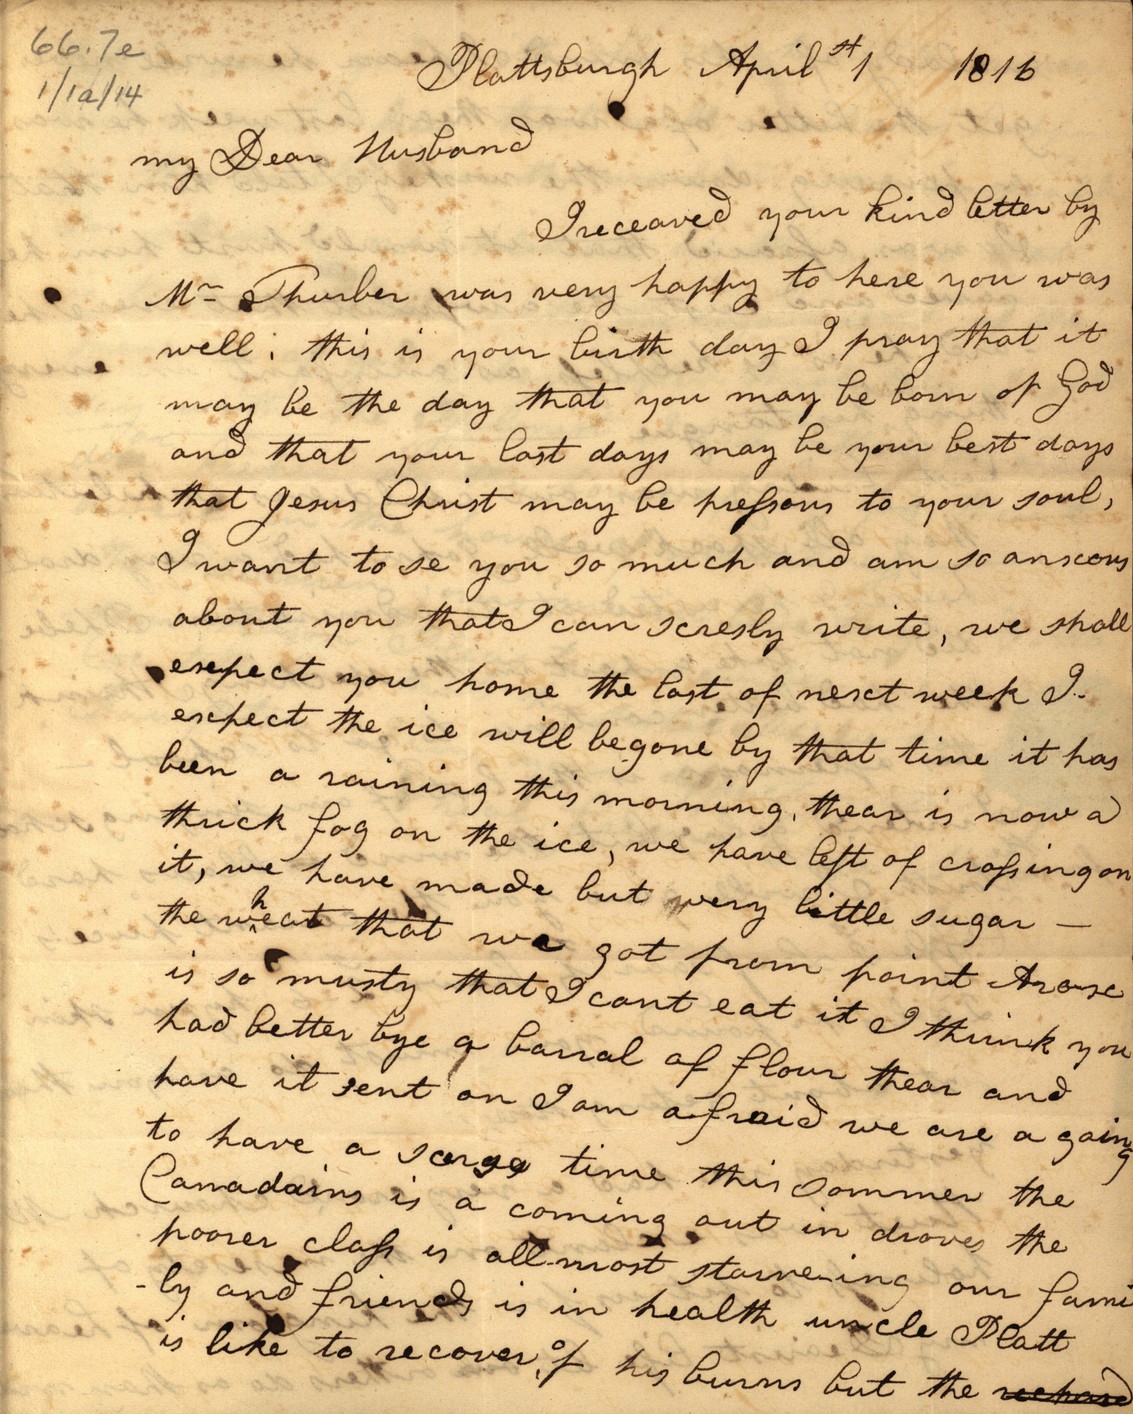 66.7e
1/1a/14
Plattsburgh April st 1 1816
my Dear Husband
I receaved your kind letter by
Mr Thurber was very happy to here you was
well; this is your birth day I pray that it
may be the day that you may be born of God
and that your last days may be your best days
that Jesus Christ may be pressous to your soul,
I want to se you so much and am so anxcous
about you that I can scresly write, we shall
exspect you home the last of nexct week I
exspect the ice will be gone by that time it has
been a raining this morning, thear is now a
thick fog on the ice, we have left of crossing on
it, we have made but very little sugar —
the wheat that we got from point Arose
is so musty that I cant eat it I think you
had better bye a barral of flour thear and
have it sent on I am afraid we are a going
to have a time this sommer the
Canadains is a coming out in droves the
poorer class is allmost starveing our fami
-ly and friends is in health uncle Platt
is like to recover of his burns but the